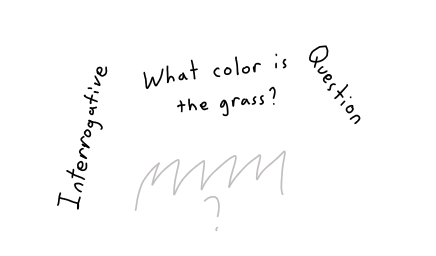 Interrogative
What color is
the grass?
Question
?